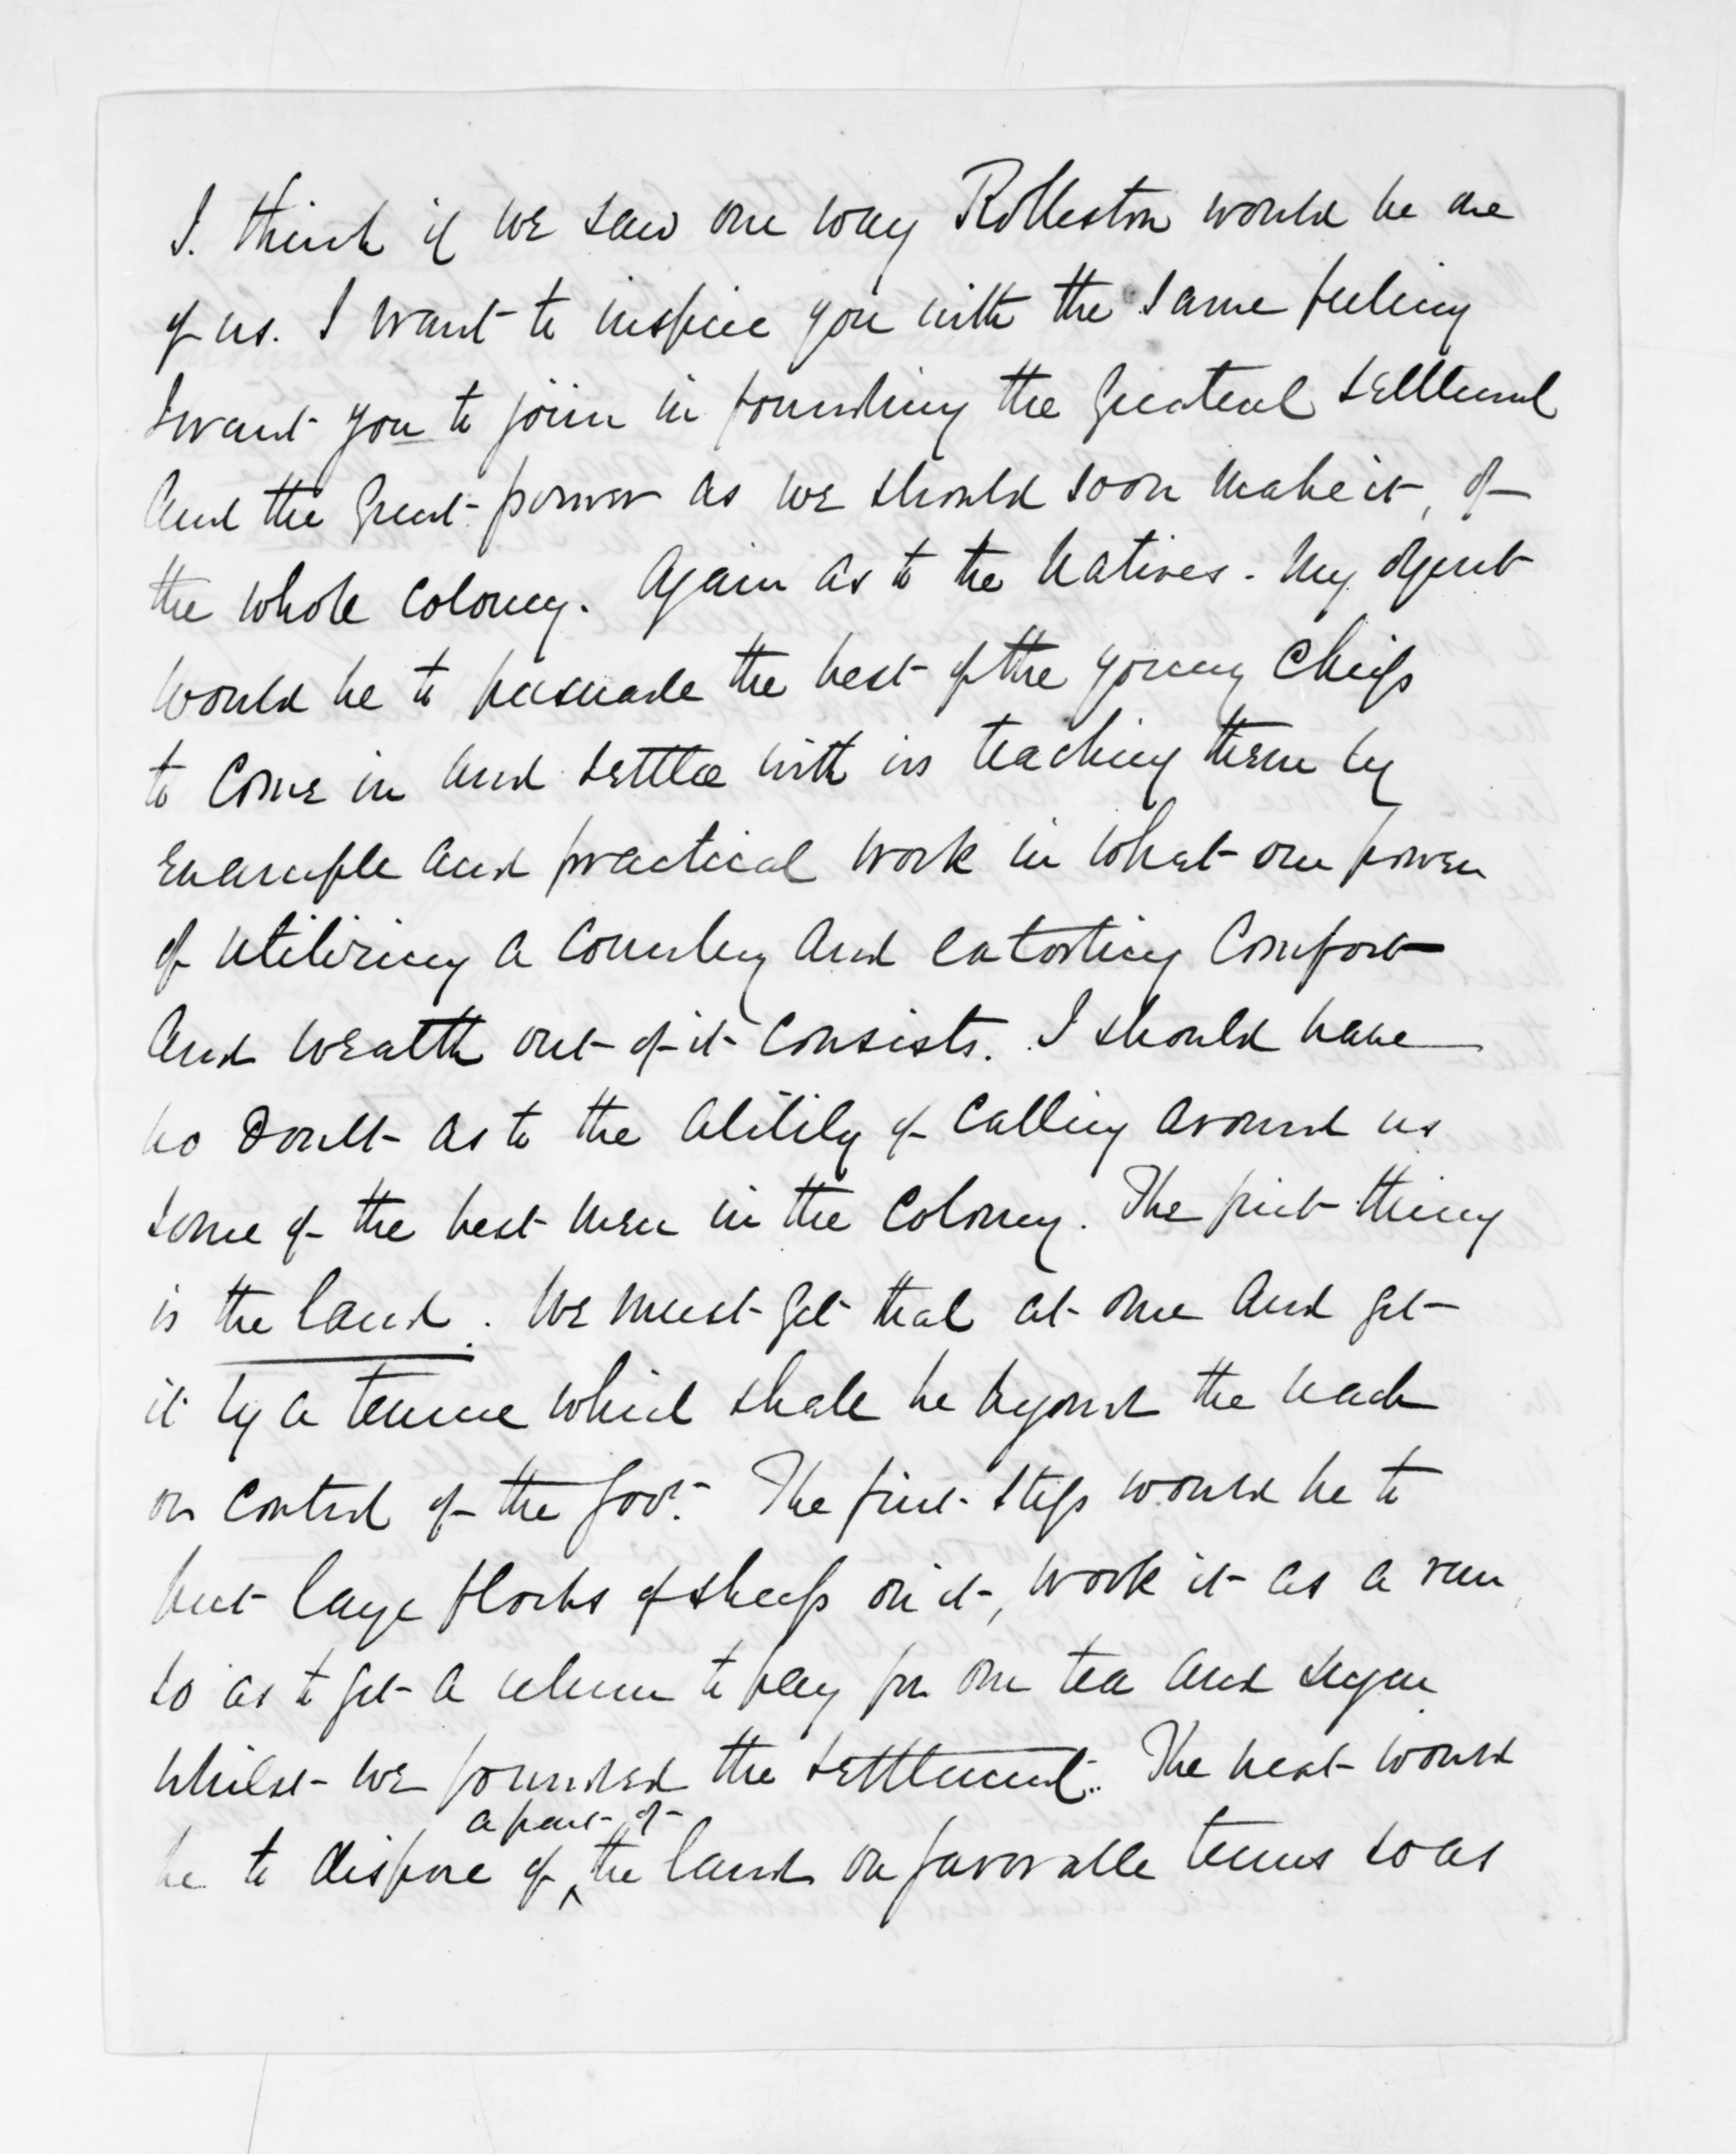 I. think if we saw our way Rolleston would be one
of us. I want to inspire you with the same feeling
I want you to join in founding the greatest settlement
and the great power as we should soon make it, of
the whole colony. Again as to the Natives. My object
would be to persuade the best of the young Chiefs
to come in and settle with us teaching them by
example and practical work in what our power
of utilizing a country and extorting comfort
and wealth out of it consists. I should have
no doubt as to the ability of calling around us
some of the best men in the colony. The first thing
is the land. We must get that at once and get
it by a tenure which shall be beyond the reach
or control of the Govt. The first step would be to
put large flocks of sheep on it, work it as a run
so as to get a return to pay for our tea and sugar
whilst we founded the settlement. The next would
a part of
be to dispose of the land on favorable terms so as